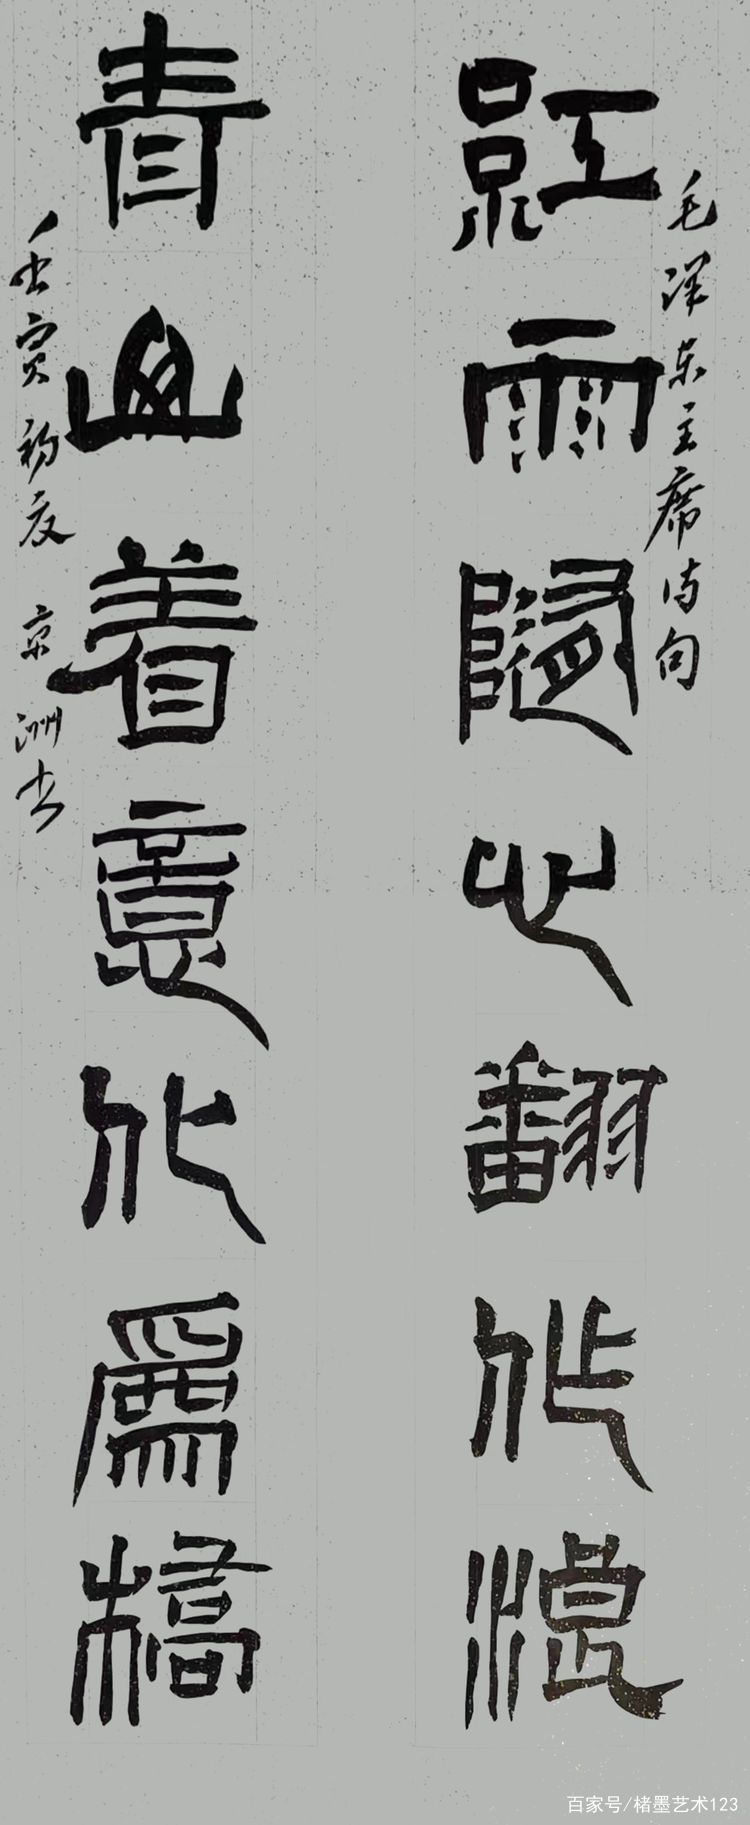 毛泽东主席诗句
紅雨隨心翻作浪
青山着意化為橋
壬寅初夏 京洲书
百家号/楮墨艺术123